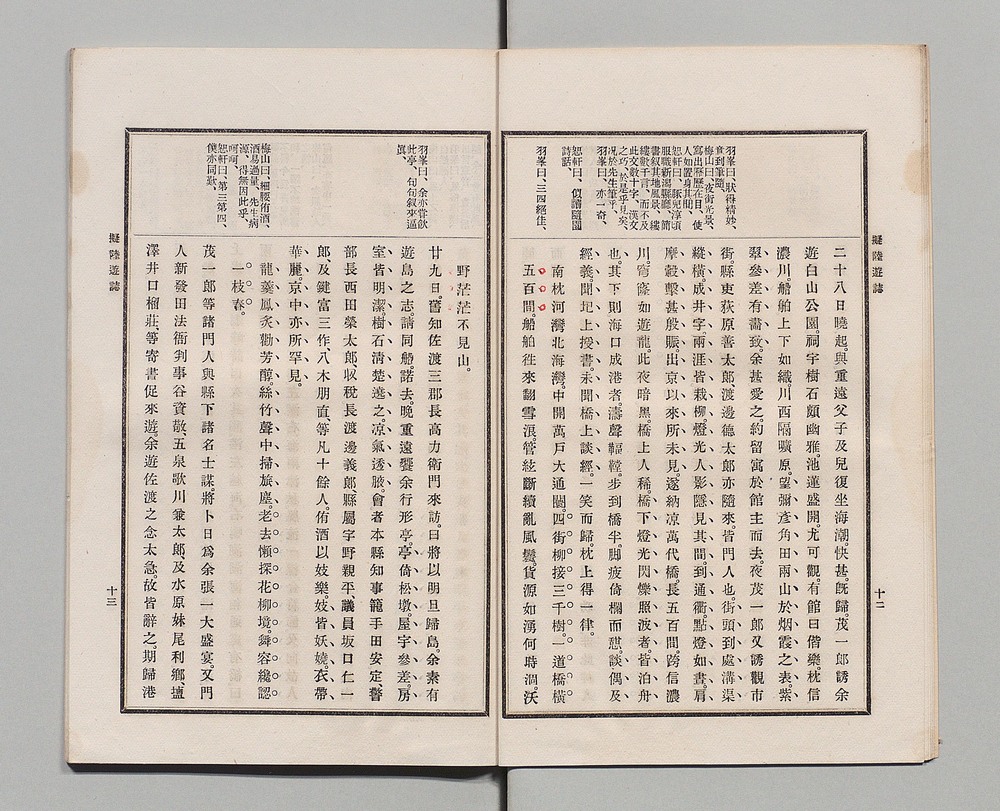 擬陸遊誌
十二
羽峯曰、狀得精妙、
食到筆隨、
梅山曰、夜街光景、
寫出歷歷在目、使
人如置身其間、
恕軒曰、豚兒淳頃
服職新潟縣廳、簡
書叙其地風景、縷
縷數千言、而不及
此文數十字、漢文
之巧、於是乎見矣、
况於先生筆乎、
羽峯曰、亦一奇、
恕軒曰、似讀隨園
詩話、
羽峯曰、三四絕佳、
二十八日曉起。與重遠父子及兒復坐海潮。快甚。既歸。茂一郎誘余
遊白山公園。祠宇樹石頗幽雅。池蓮盛開。尤可觀。有館曰偕樂。枕信
濃川。船舶上下如織。川西隔曠原。望彌彥角田兩山於烟霞之表。紫
翠參差有畵致。余甚愛之。約留寓於館主而去。夜茂一郎又誘觀市
街。縣吏荻原善太郎渡邊德太郎亦隨來。皆門人也。街頭到處溝渠
縱橫。成井字。兩涯皆栽柳。燈光人影隱見其間。到通衢。點燈如晝。肩
摩轂擊。甚殷賑。出京以來所未見。遂納凉萬代橋。長五百間。跨信濃
川。穹窿如遊龍。此夜暗黑。橋上人稀。橋下燈光閃爍照波者。皆泊舟
也。其下則海口成港者。濤聲鞺鞳。步到橋半。脚疲倚欄而憇。談偶及
經義。聞圯上授書。未聞橋上談經。一笑而歸。枕上得一律。
南枕河灣北海灣。中開萬戶大通闤。四街柳接三千樹。一道橋橫
五百間。船舶徃來翻雪浪。管絃斷續亂風鬟。貨源如湧何時涸。沃
野茫茫不見山。
廿九日。舊知佐渡三郡長高力衞門來訪。曰將以明旦歸島。余素有
遊島之志。請同船。諾去。晚重遠饗余行形亭。亭倚松墩。屋宇參差。房
室皆明潔。樹石清楚。邃之。凉氣透腋。會者本縣知事籠手田安定。警
部長西田榮太郎。收稅長渡邊義郎。縣屬宇野親平。議員坂口仁一
郎。及鍵富三作。八木朋直。等凡十餘人。侑酒以妓樂。妓皆妖嬈。衣帶
華麗。京中亦所罕見。
龍羹鳳炙勸芳醇。絲竹聲中掃旅塵。老去懶探花柳境。舞容纔認
一枝春。
茂一郎等諸門人與縣下諸名士謀。將卜日爲余張一大盛宴。又門
人新發田法衙判事谷資敬。五泉歌川兼太郎。及水原妹尾利鄕。壚
澤井口榴莊。等寄書促來遊。余遊佐渡之念太急。故皆辭之。期歸港
羽峯曰、余亦嘗飮
此亭、句句叙來逼
眞、
梅山曰、細腰侑酒、
酒易過量、先生病
源、得無因此乎、
呵呵、
恕軒曰、第三第四、
僕亦同歎、
擬陸遊誌
十三